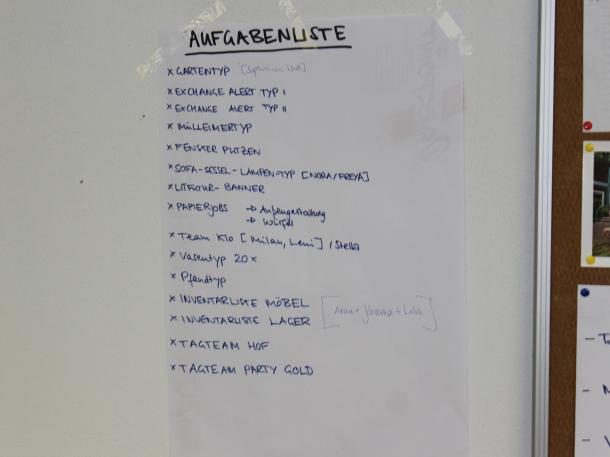 AUFGABENLISTE
x GARTENTYP
x EXCHANGE ALERT TYP I
x EXCHANGE ALERT TYP II
x MÜLLEIMERTYP
x FENSTER PUTZEN
x SOFA-SESSEL-LAMPEN-TYP [NORA/FREYA]
x LITFOUR-BANNER
x PAPIERJOBS → Außengestaltung
→ Würfel
x Team Klo [Milan, Leni] / Stella
x Vasentyp 20 x
x Pfandtyp
x INVENTARLISTE MÖBEL
x INVENTARLISTE LAGER [Anna + Johanna + Luk
x TAGTEAM HOF
x TAGTEAM PARTY GOLD